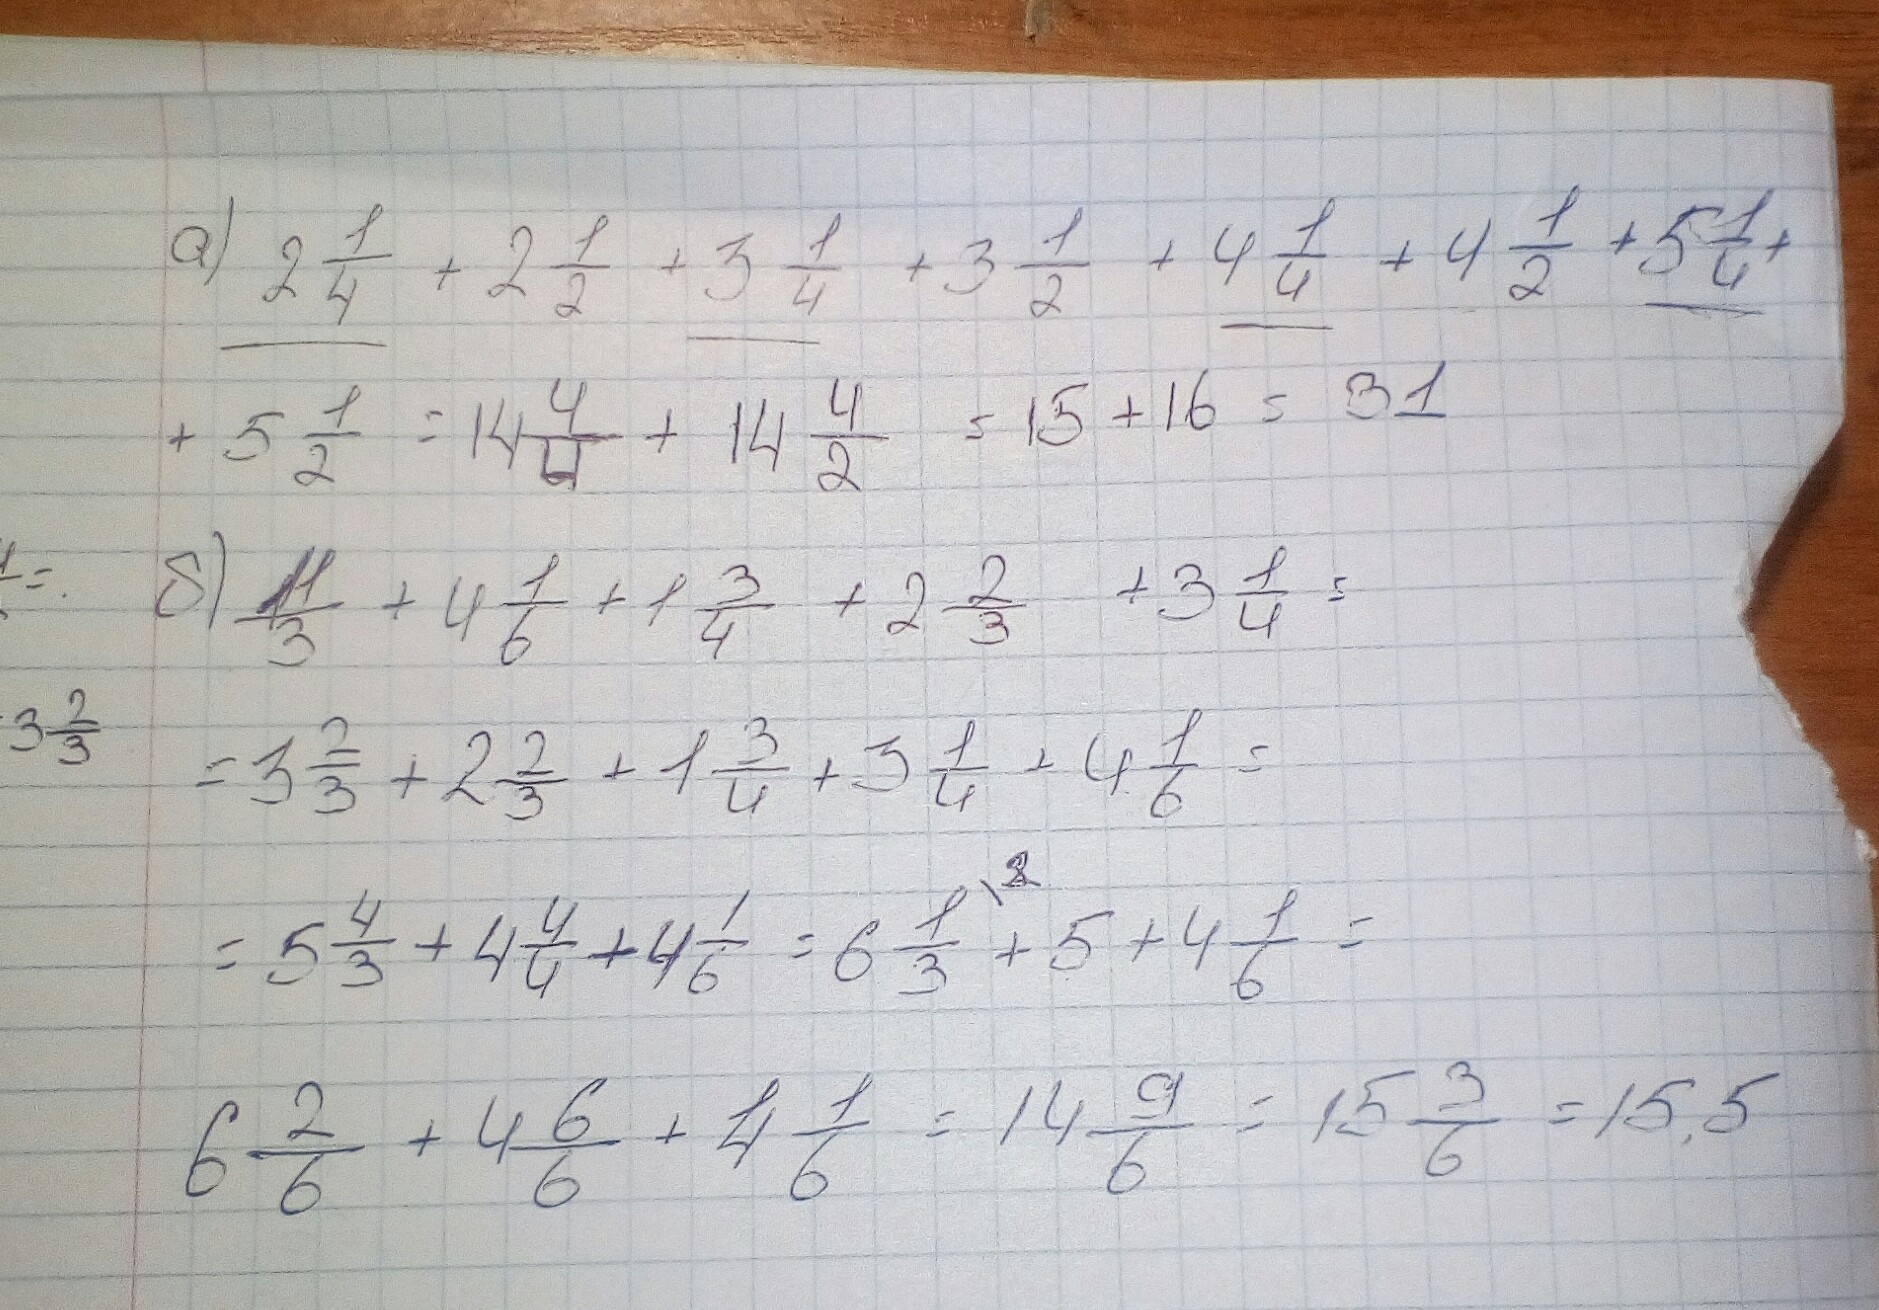 а) 2 1/4 + 2 1/2 + 3 1/4 + 3 1/2 + 4 1/4 + 4 1/2 + 5 1/4 +
+ 5 1/2 = 14 4/4 + 14 4/2 = 15 + 16 = 31
б) 11/3 + 4 1/6 + 1 3/4 + 2 2/3 + 3 1/4 =
3 2/3
= 3 2/3 + 2 2/3 + 1 3/4 + 3 1/4 + 4 1/6 =
= 5 4/3 + 4 4/4 + 4 1/6 = 6 1/3 \2 + 5 + 4 1/6 =
6 2/6 + 4 6/6 + 4 1/6 = 14 9/6 = 15 3/6 = 15,5